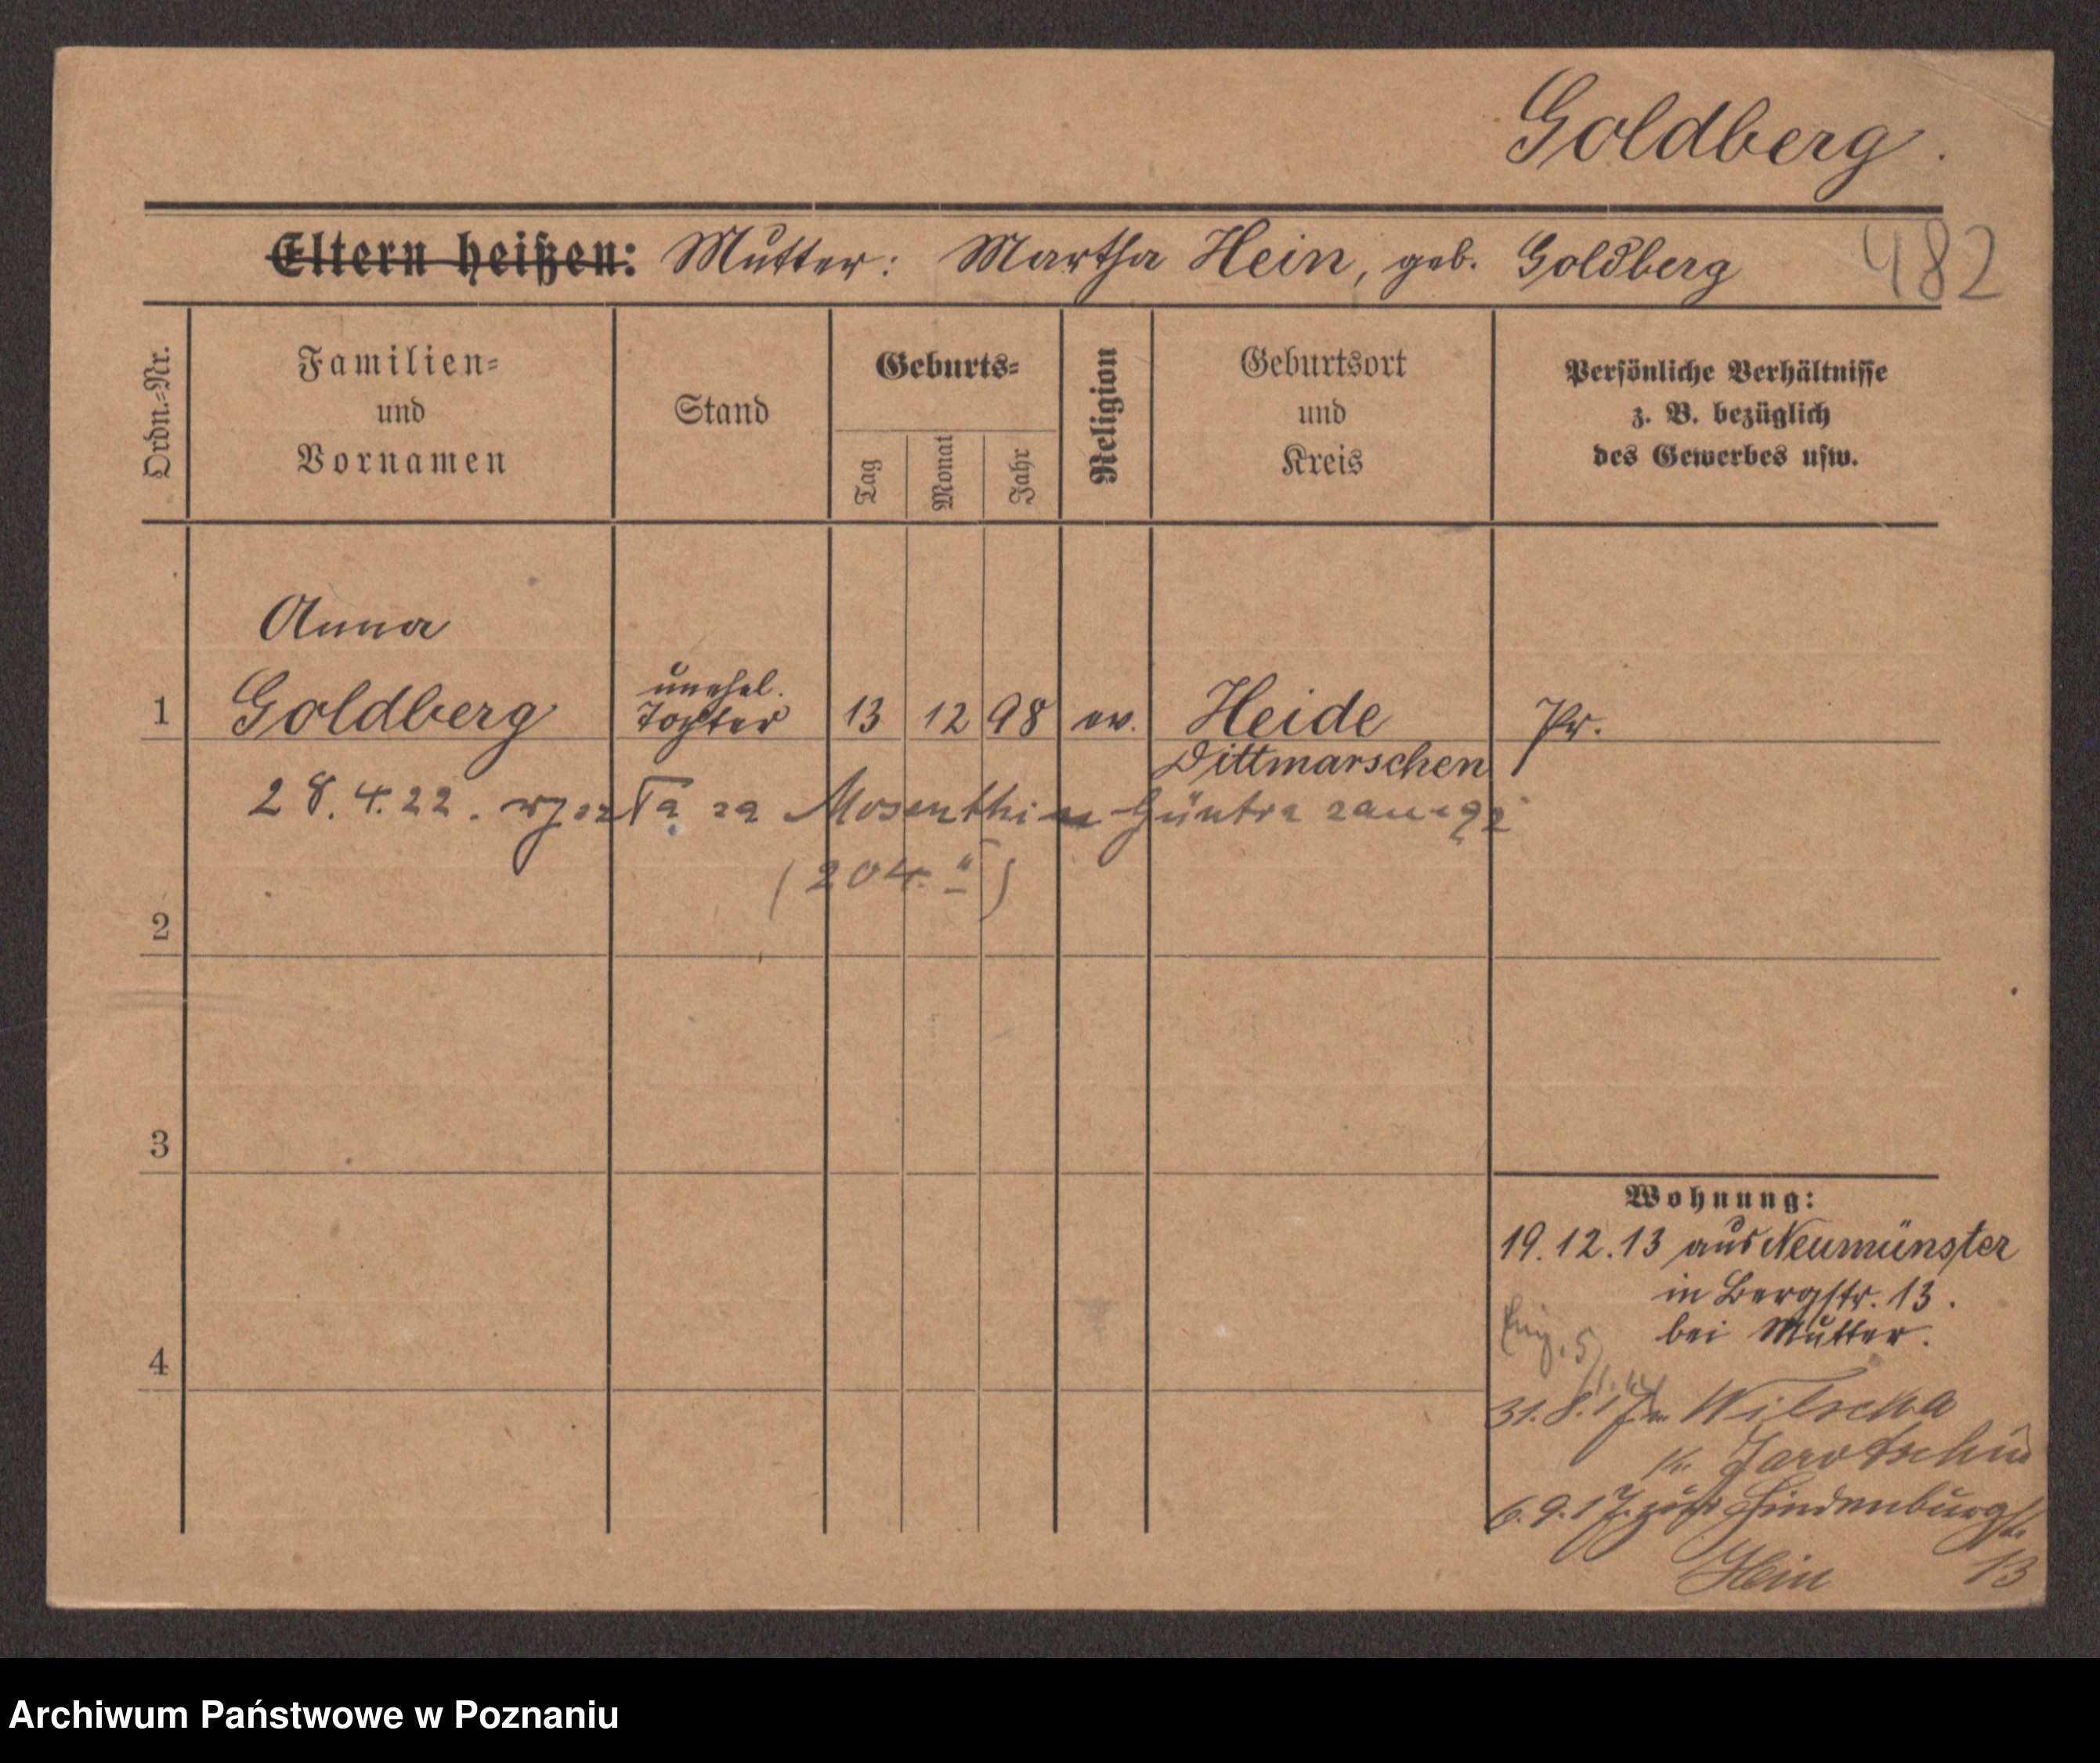 Goldberg.
Eltern heißen: Mutter: Martha Hein, geb. Goldberg 482
Ordn.-Nr.
Familien-
und
Vornamen
Stand
Geburts-
Tag
Monat
Jahr
Religion
Geburtsort
und
Kreis
Persönliche Verhältnisse
z. B. bezüglich
des Gewerbes usw.
Anna
1 Goldberg
unehel.
Tochter
13 12 98 ev. Heide
Dittmarschen
Pr.
28.4.22. wyszła za Güntra
(204.)
2
3
4
Wohnung:
19.12.13 aus Neumünster
in Bergstr. 13.
bei Mutter.
31.8.17 Wilscha
Kr. Jarotschin
6.9.17 Hindenburgstr.
Hein 13
Archiwum Państwowe w Poznaniu